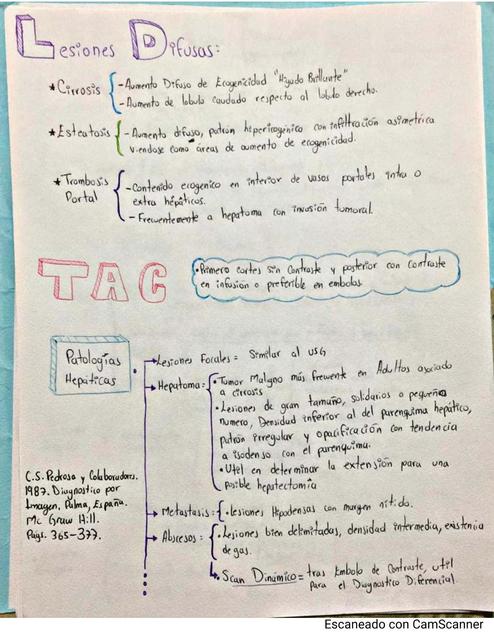 Lesiones Difusas:
* Cirrosis
- Aumento Difuso de Ecogenicidad "Higado Brillante"
- Aumento de lobulo caudado respecto al lobulo derecho.
* Esteatosis
- Aumento difuso, patron hiperirogenico con infiltración asimetrica
viendose como áreas de aumento de ecogenicidad.
* Trombosis
Portal
- Contenido erogenico en interior de vasos portales intra o
extra hépaticos.
- Frecuentemente a hepatoma con invasion tumoral.
TAC
• Primero cortes sin contraste y posterior con contraste
en infusion o preferible en embolos
Patologías
Hepáticas
Lesiones Focales = Similar al USG
Hepatoma =
• Tumor Maligno más frecuente en Adultos asociado
a cirrosis
• Lesiones de gran tamaño, solidarios o pequeño
numero, Densidad inferior al del parenquima hepático,
patrón irregular y opacificación con tendencia
a isodenso con el parenquima.
• Util en determinar la extensión para una
posible hepatectomia
Metastasis =
• Lesiones Hipodensas con margen nitido.
Abscesos =
• Lesiones bien delimitadas, densidad intermedia, existencia
de gas.
Scan Dinámico = tras Embolo de Contraste, util
para el Diagnostico Diferencial.
C.S. Pedrosa y Colaboradores.
1987. Diagnostico por
Imagen, Palma, España.
Mc Graw Hill.
Pags. 365-377.
Escaneado con CamScanner